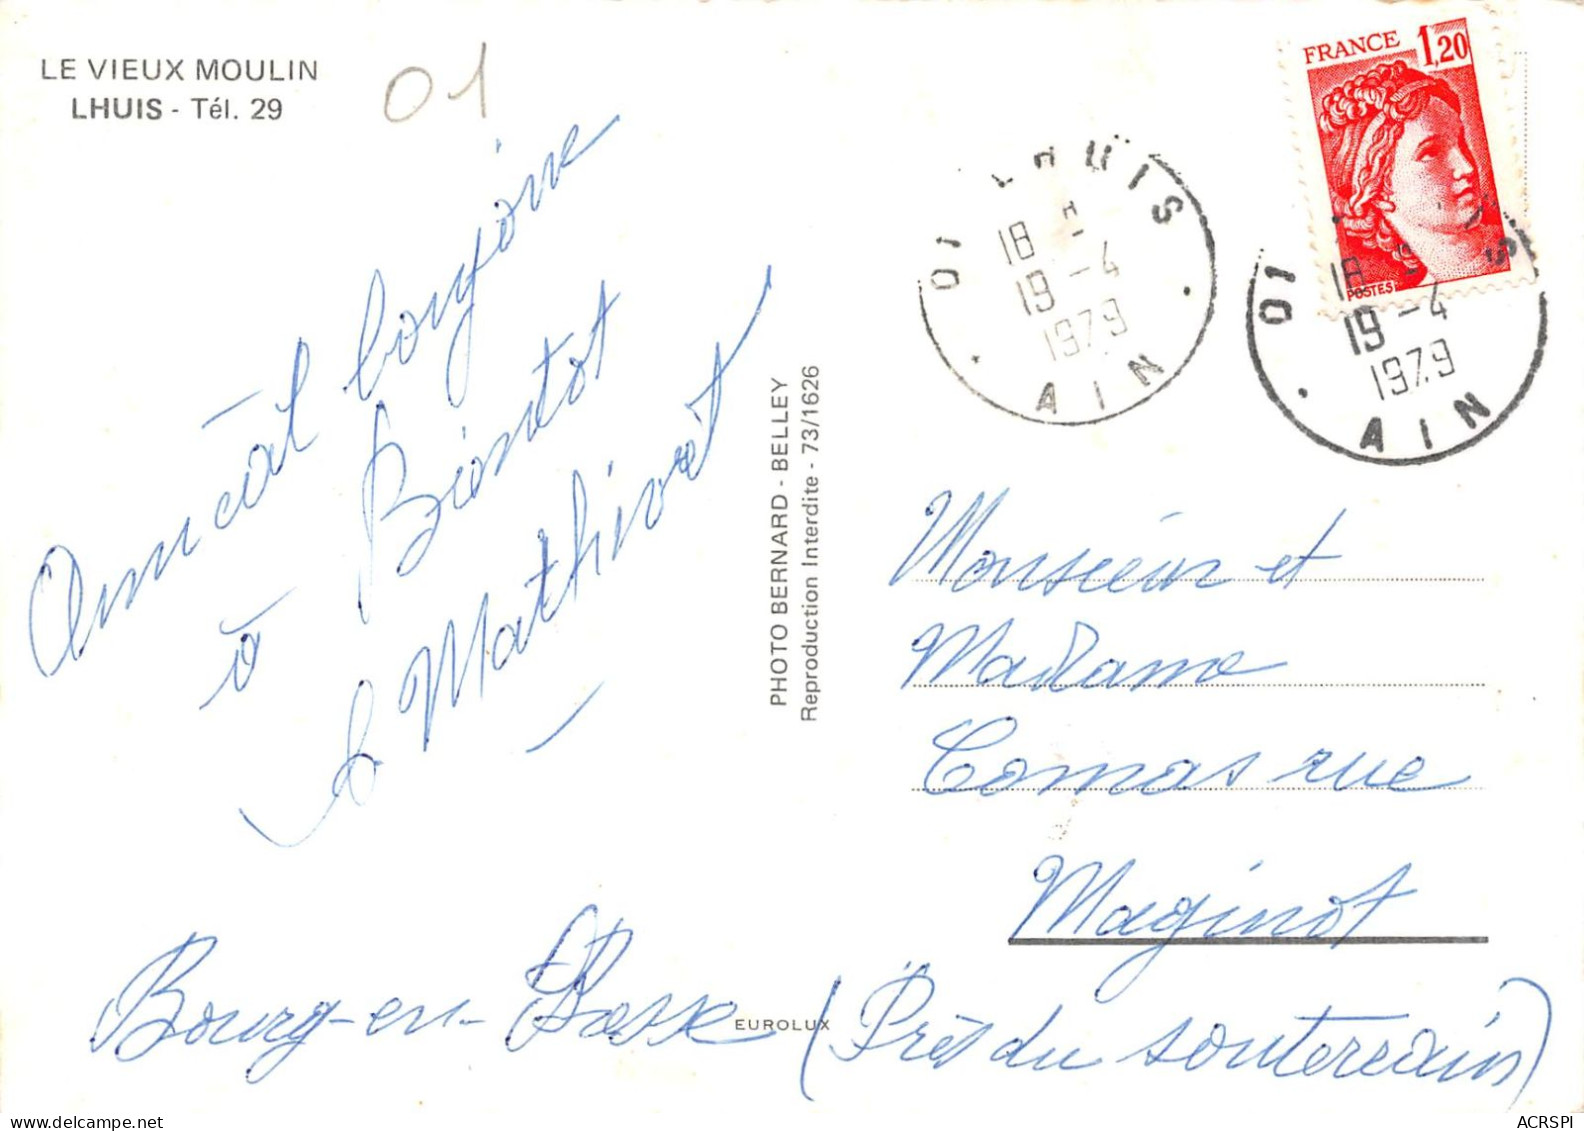 LE VIEUX MOULIN
LHUIS - Tél. 29
01
Amical bonjour
à Bientôt
S Mathivet
PHOTO BERNARD - BELLEY
Reproduction Interdite - 73/1626
EUROLUX
FRANCE 1,20
POSTES
01 LHUIS
18 H
19 - 4
1979
AIN
01
18 H
19 - 4
1979
AIN
Monsieur et
Madame
Comas rue
Maginot
Bourg-en-Bresse (Près du souterrain)
ACRSPI